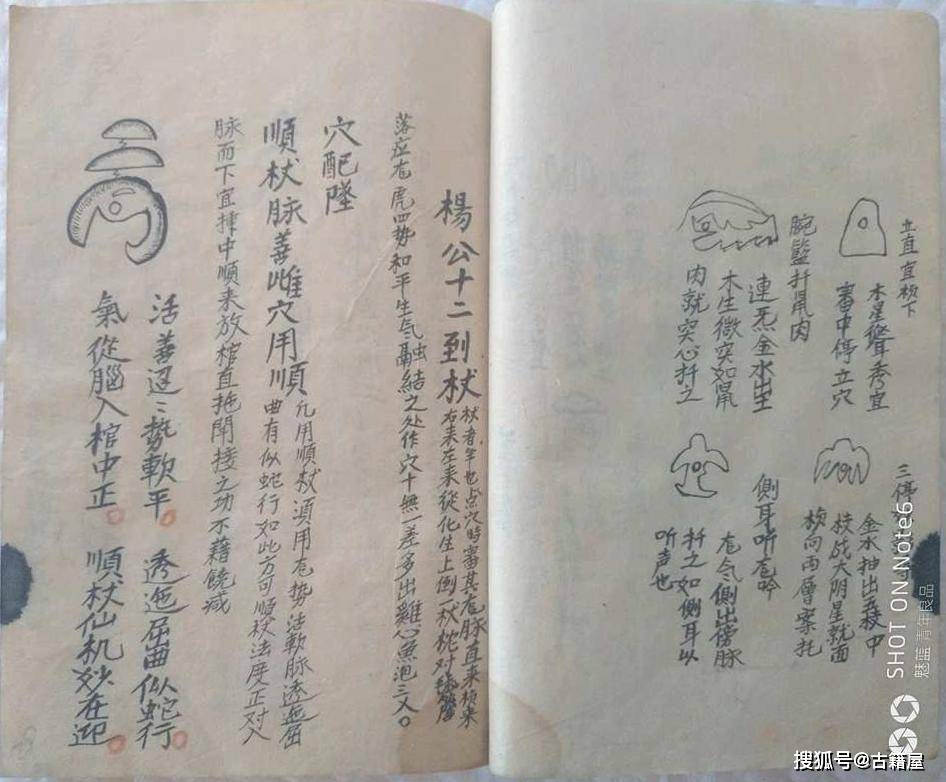 立直宜板下
木星聳秀宜
審中停立穴
腕籃扦鼠肉
連炁金水出
木生微突如鼠
肉就突心扦之
三停
金水抽出發中
大阴星就面
向两層案托
側耳听危吟
危令側出傍脉
扦之如側耳以
听声也
楊公十二到杖
杖者竿也点穴時審其危脉直来横来
右来左来從化生上倒一杖枕对
落症危虎四势和平生气融結之处作穴十無一差多出雞心魚泡三叉。
穴配墜
順杖脉善雌穴用順
凢用順杖湏用危势活軟脉透迤屈
曲有似蛇行如此方可順杖法度正对入
脉而下宜揷中順来放棺直拖開接之功不藉饒减
活善迢〻势軟平。透迤屈曲似蛇行。
氣從腦入棺中正。順杖仙机妙在迎。
SHOT ON Note6
魅蓝 青年良品
搜狐号@古籍屋